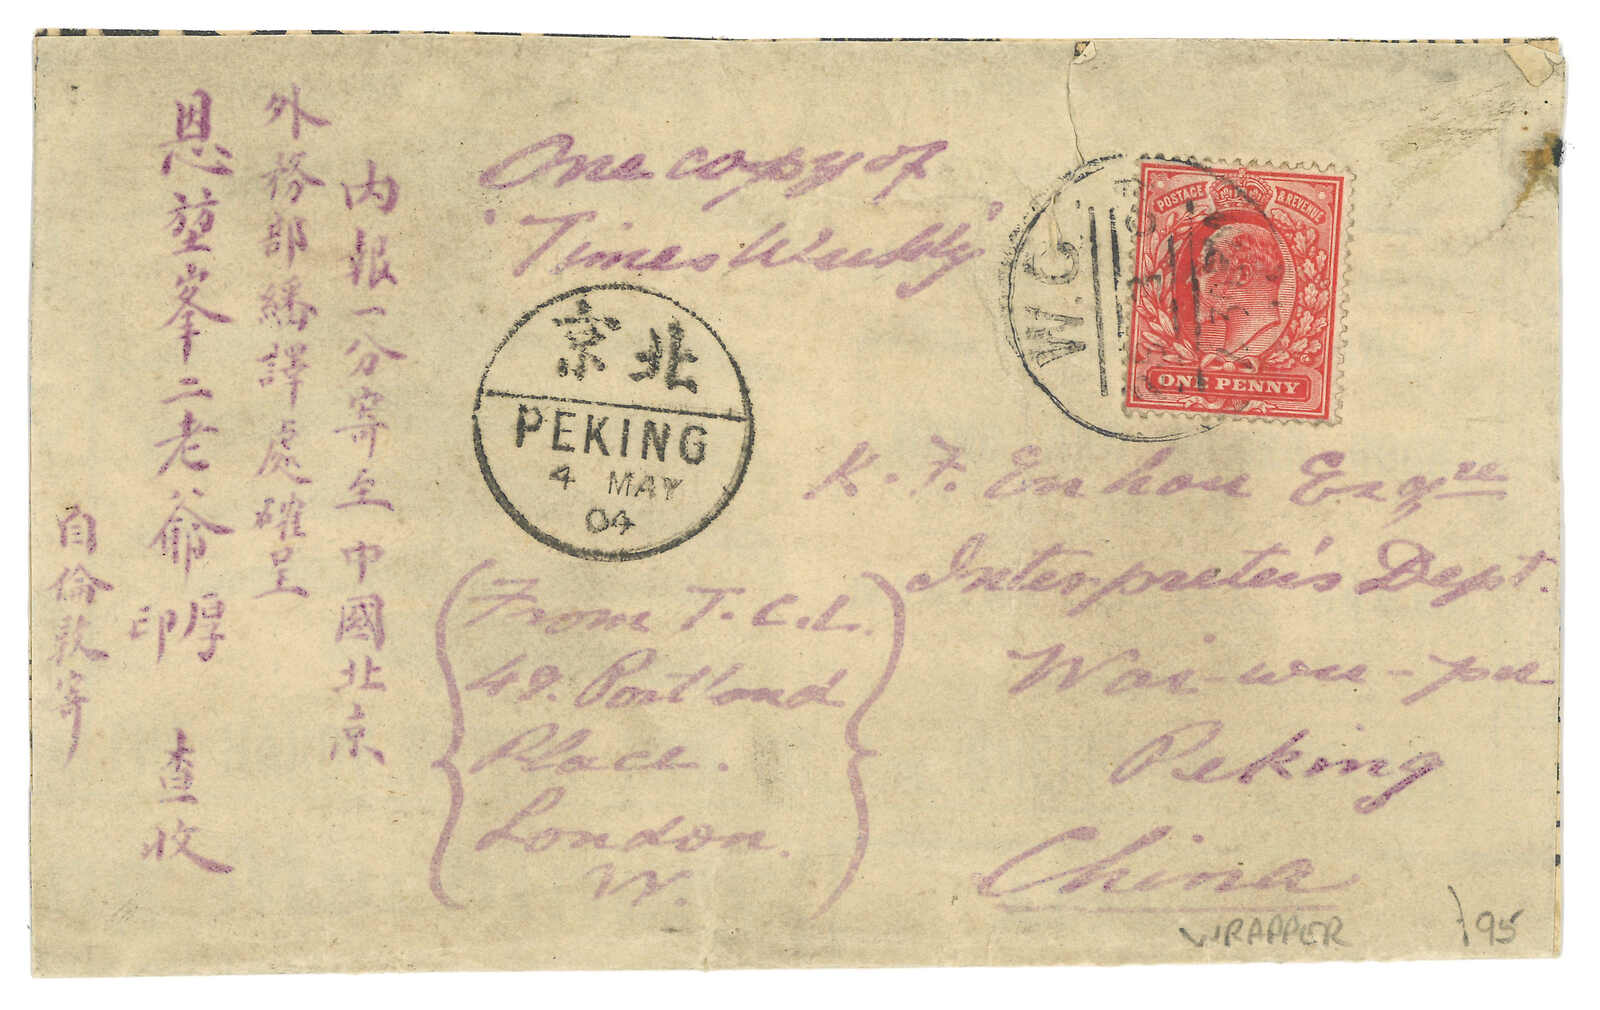 內報一分寄至中國北京
外務部繙譯處確呈
恩堃峯二老爺
印厚
查收
自倫敦寄
One copy of
'Times Weekly'
北京
PEKING
4 MAY
04
W.C.
POSTAGE & REVENUE
ONE PENNY
K. F. Enhou Esqre
Interpreter's Dept.
Wai-wu-pu
Peking
China
From T.C.L.
49. Portland
Place.
London.
W.
WRAPPER
195